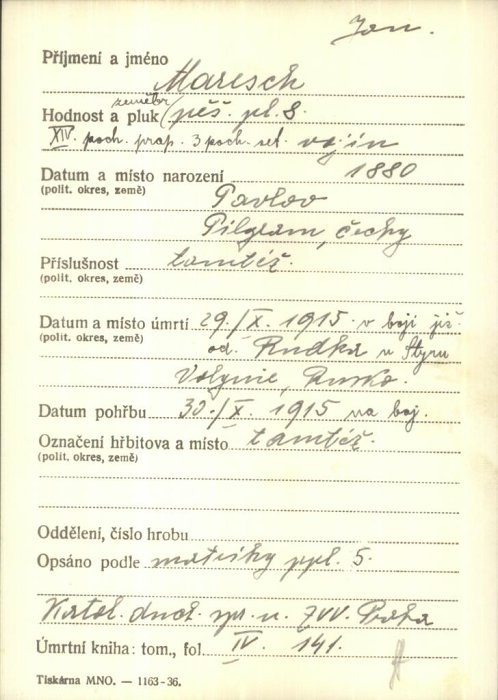 Jan.
Příjmení a jméno
Maresch
zeměbr.
Hodnost a pluk pěš. pl. 8.
XIV. poch. prap. 3 poch. set. vojín
Datum a místo narození 1880
(polit. okres, země)
Pavlov
Pilgram, čechy
Příslušnost tamtéž.
(polit. okres, země)
Datum a místo úmrtí 29./X. 1915 v boji již.
(polit. okres, země)
od. Rudka u Styru
Volynie, Rusko.
Datum pohřbu 30./X. 1915 na boj.
Označení hřbitova a místo tamtéž.
(polit. okres, země)
Oddělení, číslo hrobu
Opsáno podle matriky ppl. 5.
Katol. duch. spr. u. ZVV. Praha
Úmrtní kniha: tom., fol. IV. 141.
Tiskárna MNO. — 1163-36.